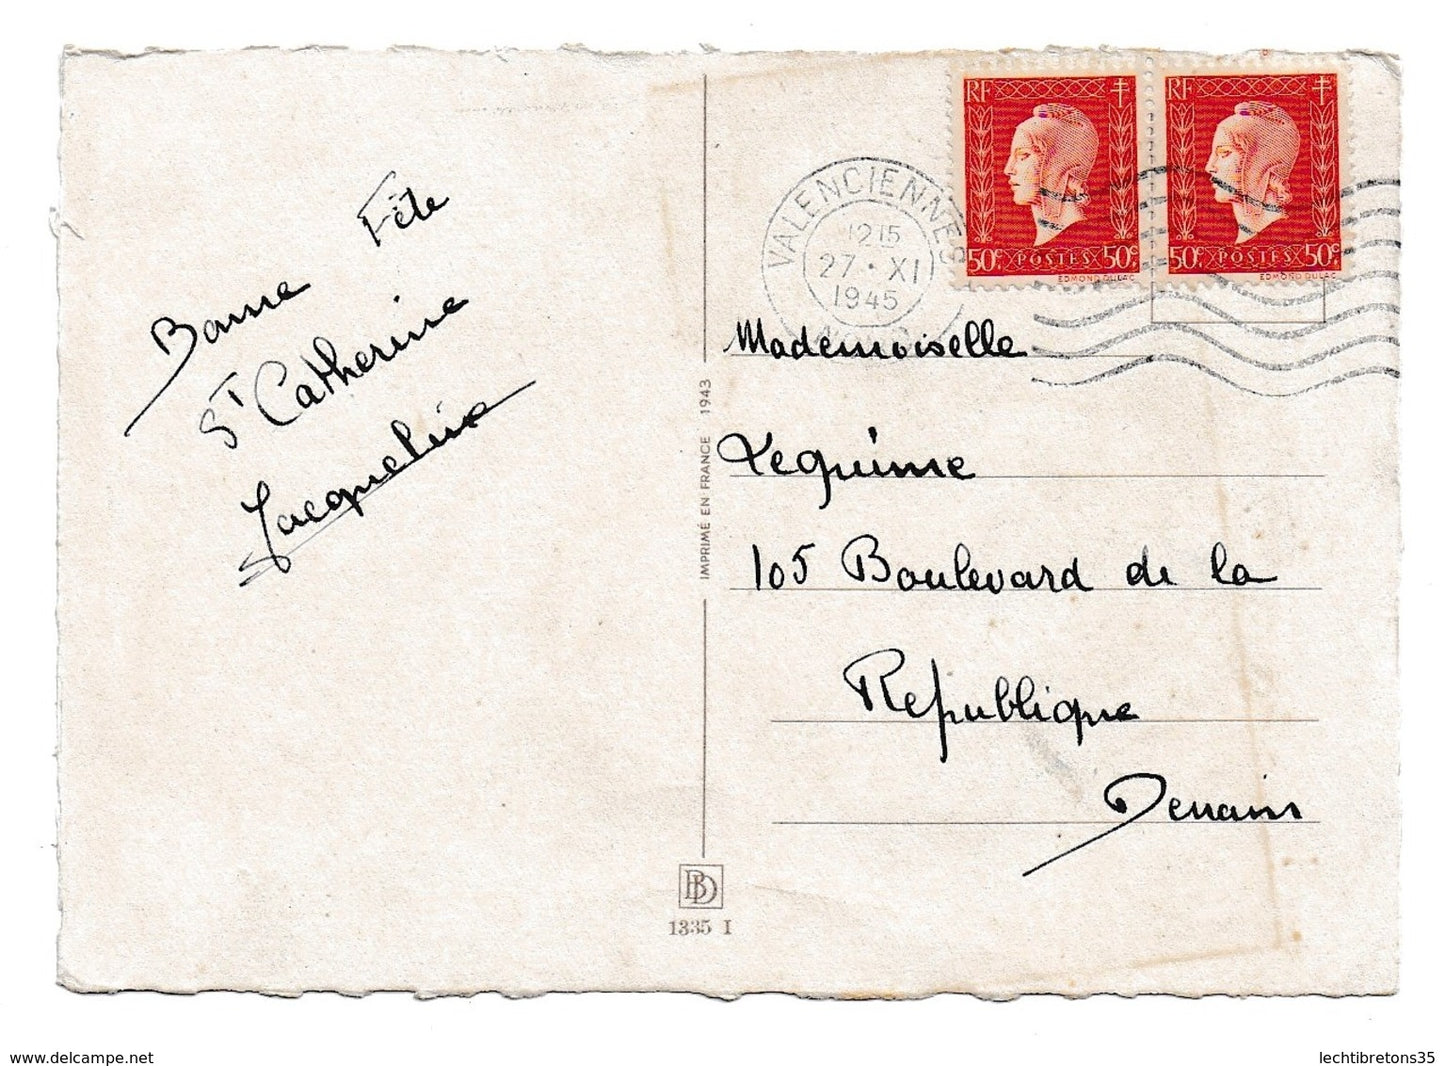 Bonne Fête
St Catherine
Jacqueline
RF
50c POSTES 50c
EDMOND DULAC
RF
50c POSTES 50c
EDMOND DULAC
VALENCIENNES
12 15
27 · XI
1945
Mademoiselle
Lequime
105 Boulevard de la
République
Denain
IMPRIMÉ EN FRANCE 1943
BD
1335 I
www.delcampe.net
lechtibretons35